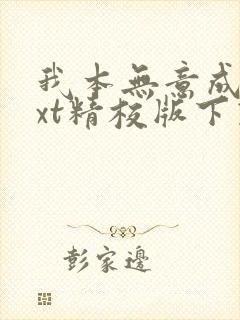 我本無意成
xt精校版下
彭家邊